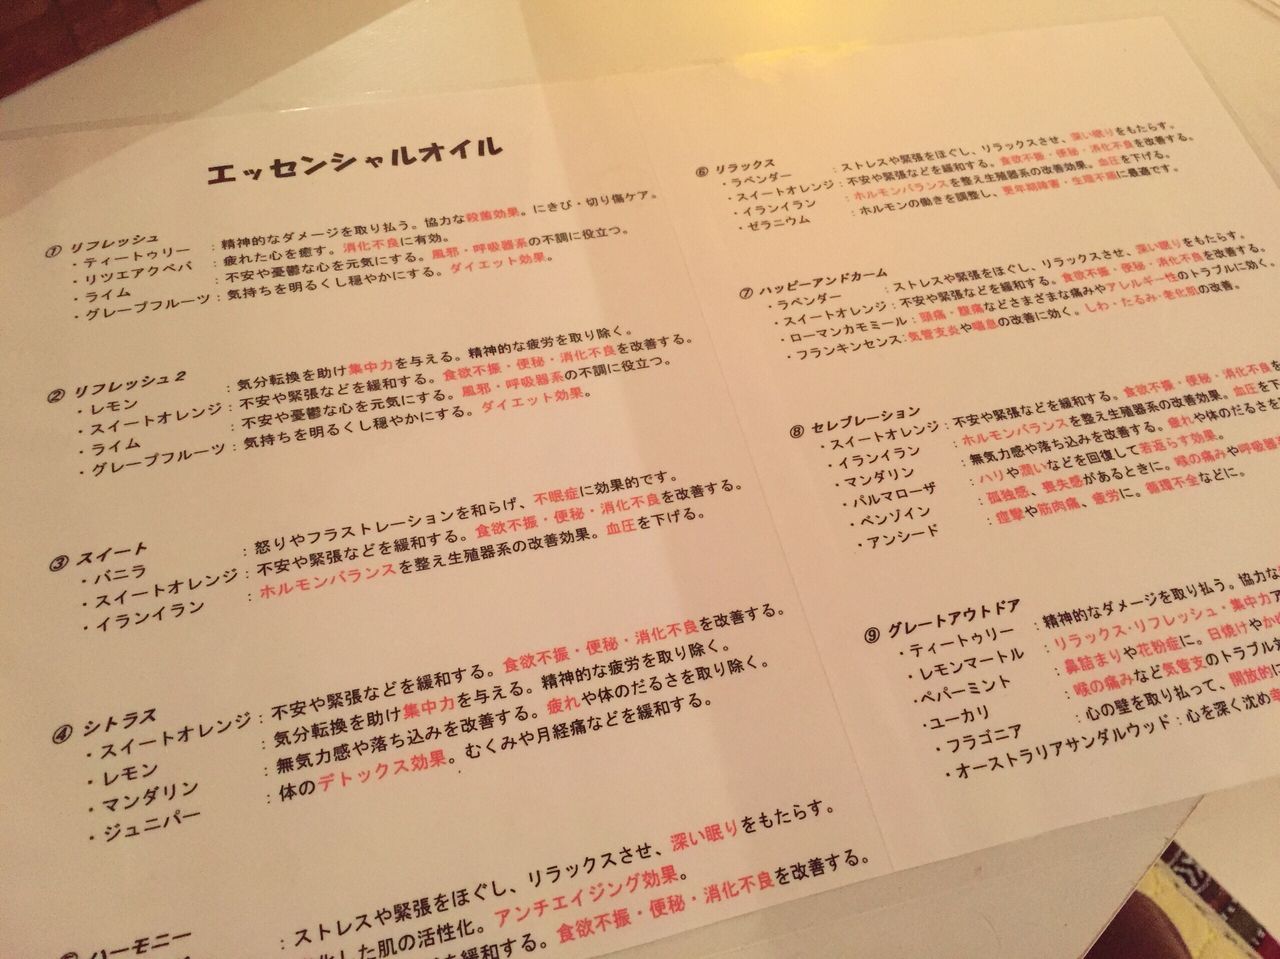 エッセンシャルオイル
① リフレッシュ
・ティートゥリー ：精神的なダメージを取り払う。協力な殺菌効果。にきび・切り傷ケア。
・リツエアクベバ ：疲れた心を癒す。消化不良に有効。
・ライム ：不安や憂鬱な心を元気にする。風邪・呼吸器系の不調に役立つ。
・グレープフルーツ：気持ちを明るくし穏やかにする。ダイエット効果。
② リフレッシュ２
・レモン ：気分転換を助け集中力を与える。精神的な疲労を取り除く。
・スイートオレンジ：不安や緊張などを緩和する。食欲不振・便秘・消化不良を改善する。
・ライム ：不安や憂鬱な心を元気にする。風邪・呼吸器系の不調に役立つ。
・グレープフルーツ：気持ちを明るくし穏やかにする。ダイエット効果。
③ スイート
・バニラ ：怒りやフラストレーションを和らげ、不眠症に効果的です。
・スイートオレンジ：不安や緊張などを緩和する。食欲不振・便秘・消化不良を改善する。
・イランイラン ：ホルモンバランスを整え生殖器系の改善効果。血圧を下げる。
④ シトラス
・スイートオレンジ：不安や緊張などを緩和する。食欲不振・便秘・消化不良を改善する。
・レモン ：気分転換を助け集中力を与える。精神的な疲労を取り除く。
・マンダリン ：無気力感や落ち込みを改善する。疲れや体のだるさを取り除く。
・ジュニパー ：体のデトックス効果。むくみや月経痛などを緩和する。
ハーモニー
：ストレスや緊張をほぐし、リラックスさせ、深い眠りをもたらす。
した肌の活性化。アンチエイジング効果。
を緩和する。食欲不振・便秘・消化不良を改善する。
⑥ リラックス
・ラベンダー ：ストレスや緊張をほぐし、リラックスさせ、深い眠りをもたらす。
・スイートオレンジ：不安や緊張などを緩和する。食欲不振・便秘・消化不良を改善する。
・イランイラン ：ホルモンバランスを整え生殖器系の改善効果。血圧を下げる。
・ゼラニウム ：ホルモンの働きを調整し、更年期障害・生理不順に最適です。
⑦ ハッピーアンドカーム
・ラベンダー ：ストレスや緊張をほぐし、リラックスさせ、深い眠りをもたらす。
・スイートオレンジ：不安や緊張などを緩和する。食欲不振・便秘・消化不良を改善する。
・ローマンカモミール：頭痛・腹痛などさまざまな痛みやアレルギー性のトラブルに効く。
・フランキンセンス：気管支炎や喘息の改善に効く。しわ・たるみ・老化肌の改善。
⑧ セレブレーション
・スイートオレンジ：不安や緊張などを緩和する。食欲不振・便秘・消化不良を
・イランイラン ：ホルモンバランスを整え生殖器系の改善効果。血圧を下
・マンダリン ：無気力感や落ち込みを改善する。疲れや体のだるさを
・パルマローザ ：ハリや潤いなどを回復して若返らす効果。
・ベンゾイン ：孤独感、喪失感があるときに。喉の痛みや呼吸器
・アンシード ：痙攣や筋肉痛、疲労に。循環不全などに。
⑨ グレートアウトドア
・ティートゥリー ：精神的なダメージを取り払う。協力な
・レモンマートル ：リラックス・リフレッシュ・集中力ア
・ペパーミント ：鼻詰まりや花粉症に。日焼けやか
・ユーカリ ：喉の痛みなど気管支のトラブル
・フラゴニア ：心の壁を取り払って、開放的に
・オーストラリアサンダルウッド：心を深く沈め